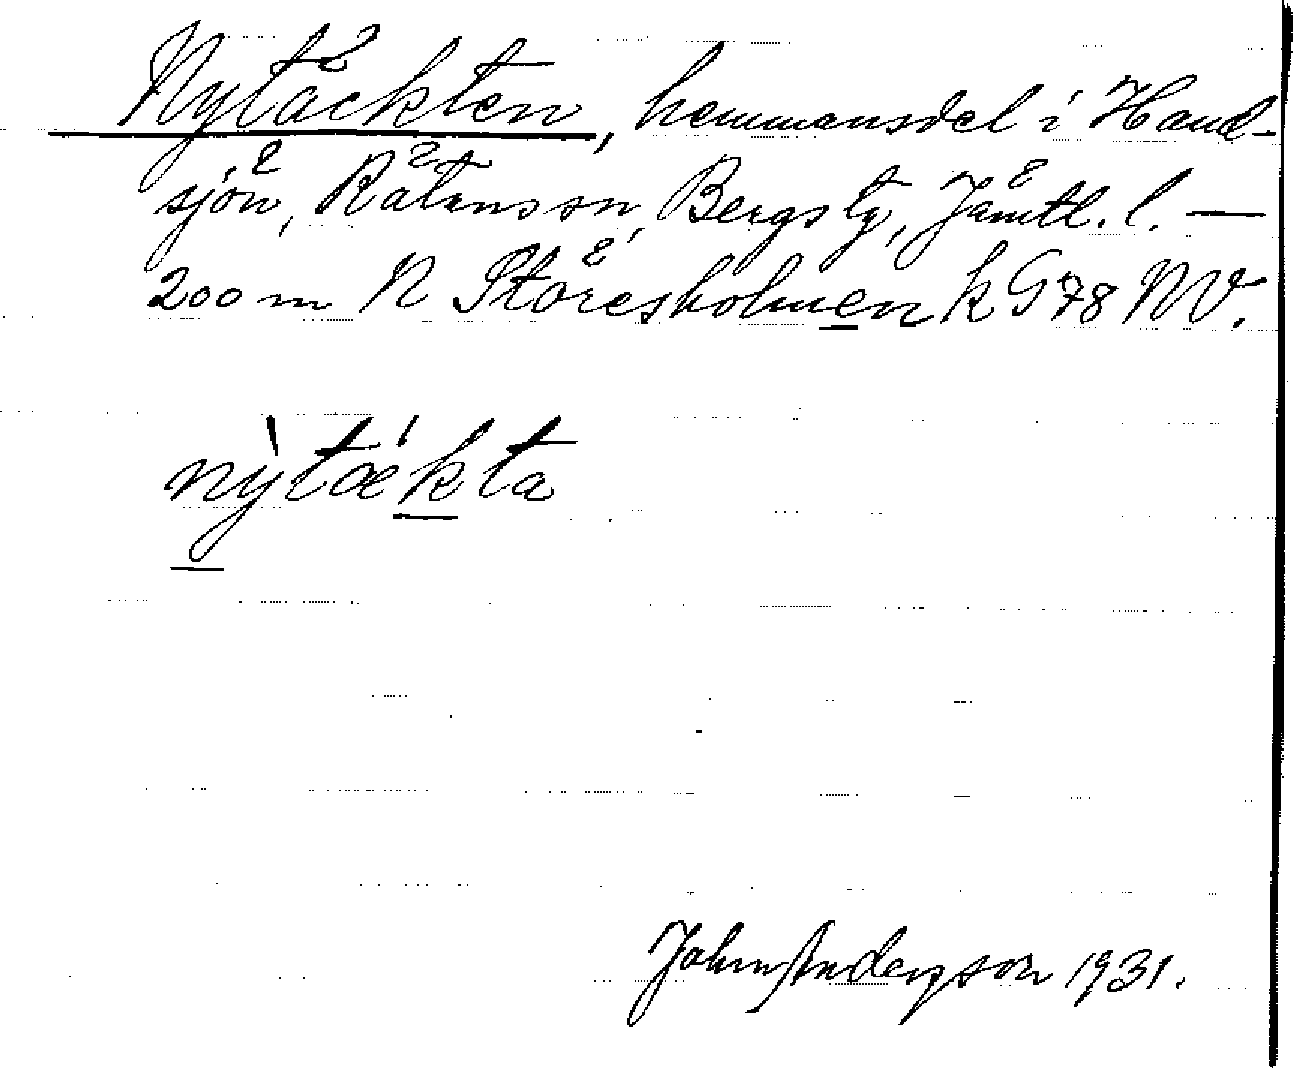 Nytäckten, hemmansdel i Hand-
sjön, Rätanssn, Bergs tg, Jämtl. l. —
200 m N Störesholmen k G 78 NV.
nỳtǽkta
John Anderson 1931.